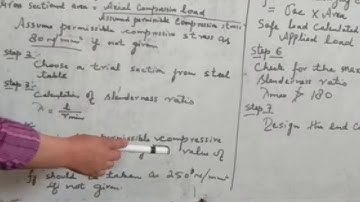 Gross sectional area = Axial Compression Load
Assumed permissible Compressive stress
Assume permissible compressive stress as
80 N/mm² if not given
Step 2:
Choose a trial section from steel
table
Step 3:
Calculation of slenderness ratio
λ = l / rmin
permissible compressive
value of
fy should be taken as 250 N/mm²
if not given.
= σac x Area
Safe load Calculated
Applied load
Step 6
Check for the max
slenderness ratio
λmax ≯ 180
Step 7
Design the end c